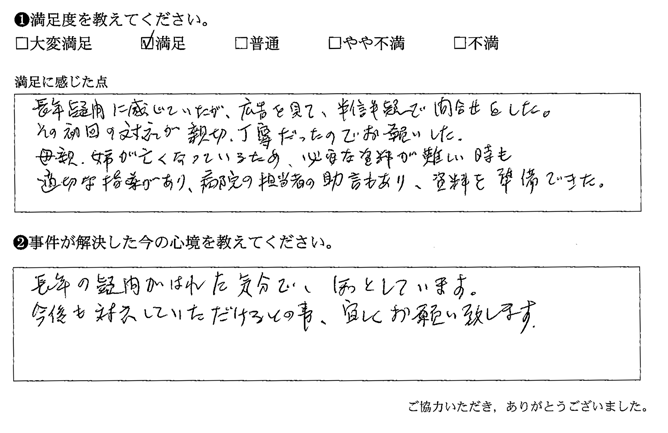 ❶満足度を教えてください。
□大変満足 ☑満足 □普通 □やや不満 □不満
満足に感じた点
長年疑問に感じていたが、広告を見て、半信半疑で問合せをした。
その初回の対応が親切、丁寧だったのでお願いした。
母親、姉が亡くなっているため、必要な資料が難しい時も
適切な指導があり、病院の担当者の助言もあり、資料を準備できた。
❷事件が解決した今の心境を教えてください。
長年の疑問がはれた気分で、ほっとしています。
今後も対応していただけるとの事、宜しくお願い致します。
ご協力いただき，ありがとうございました。